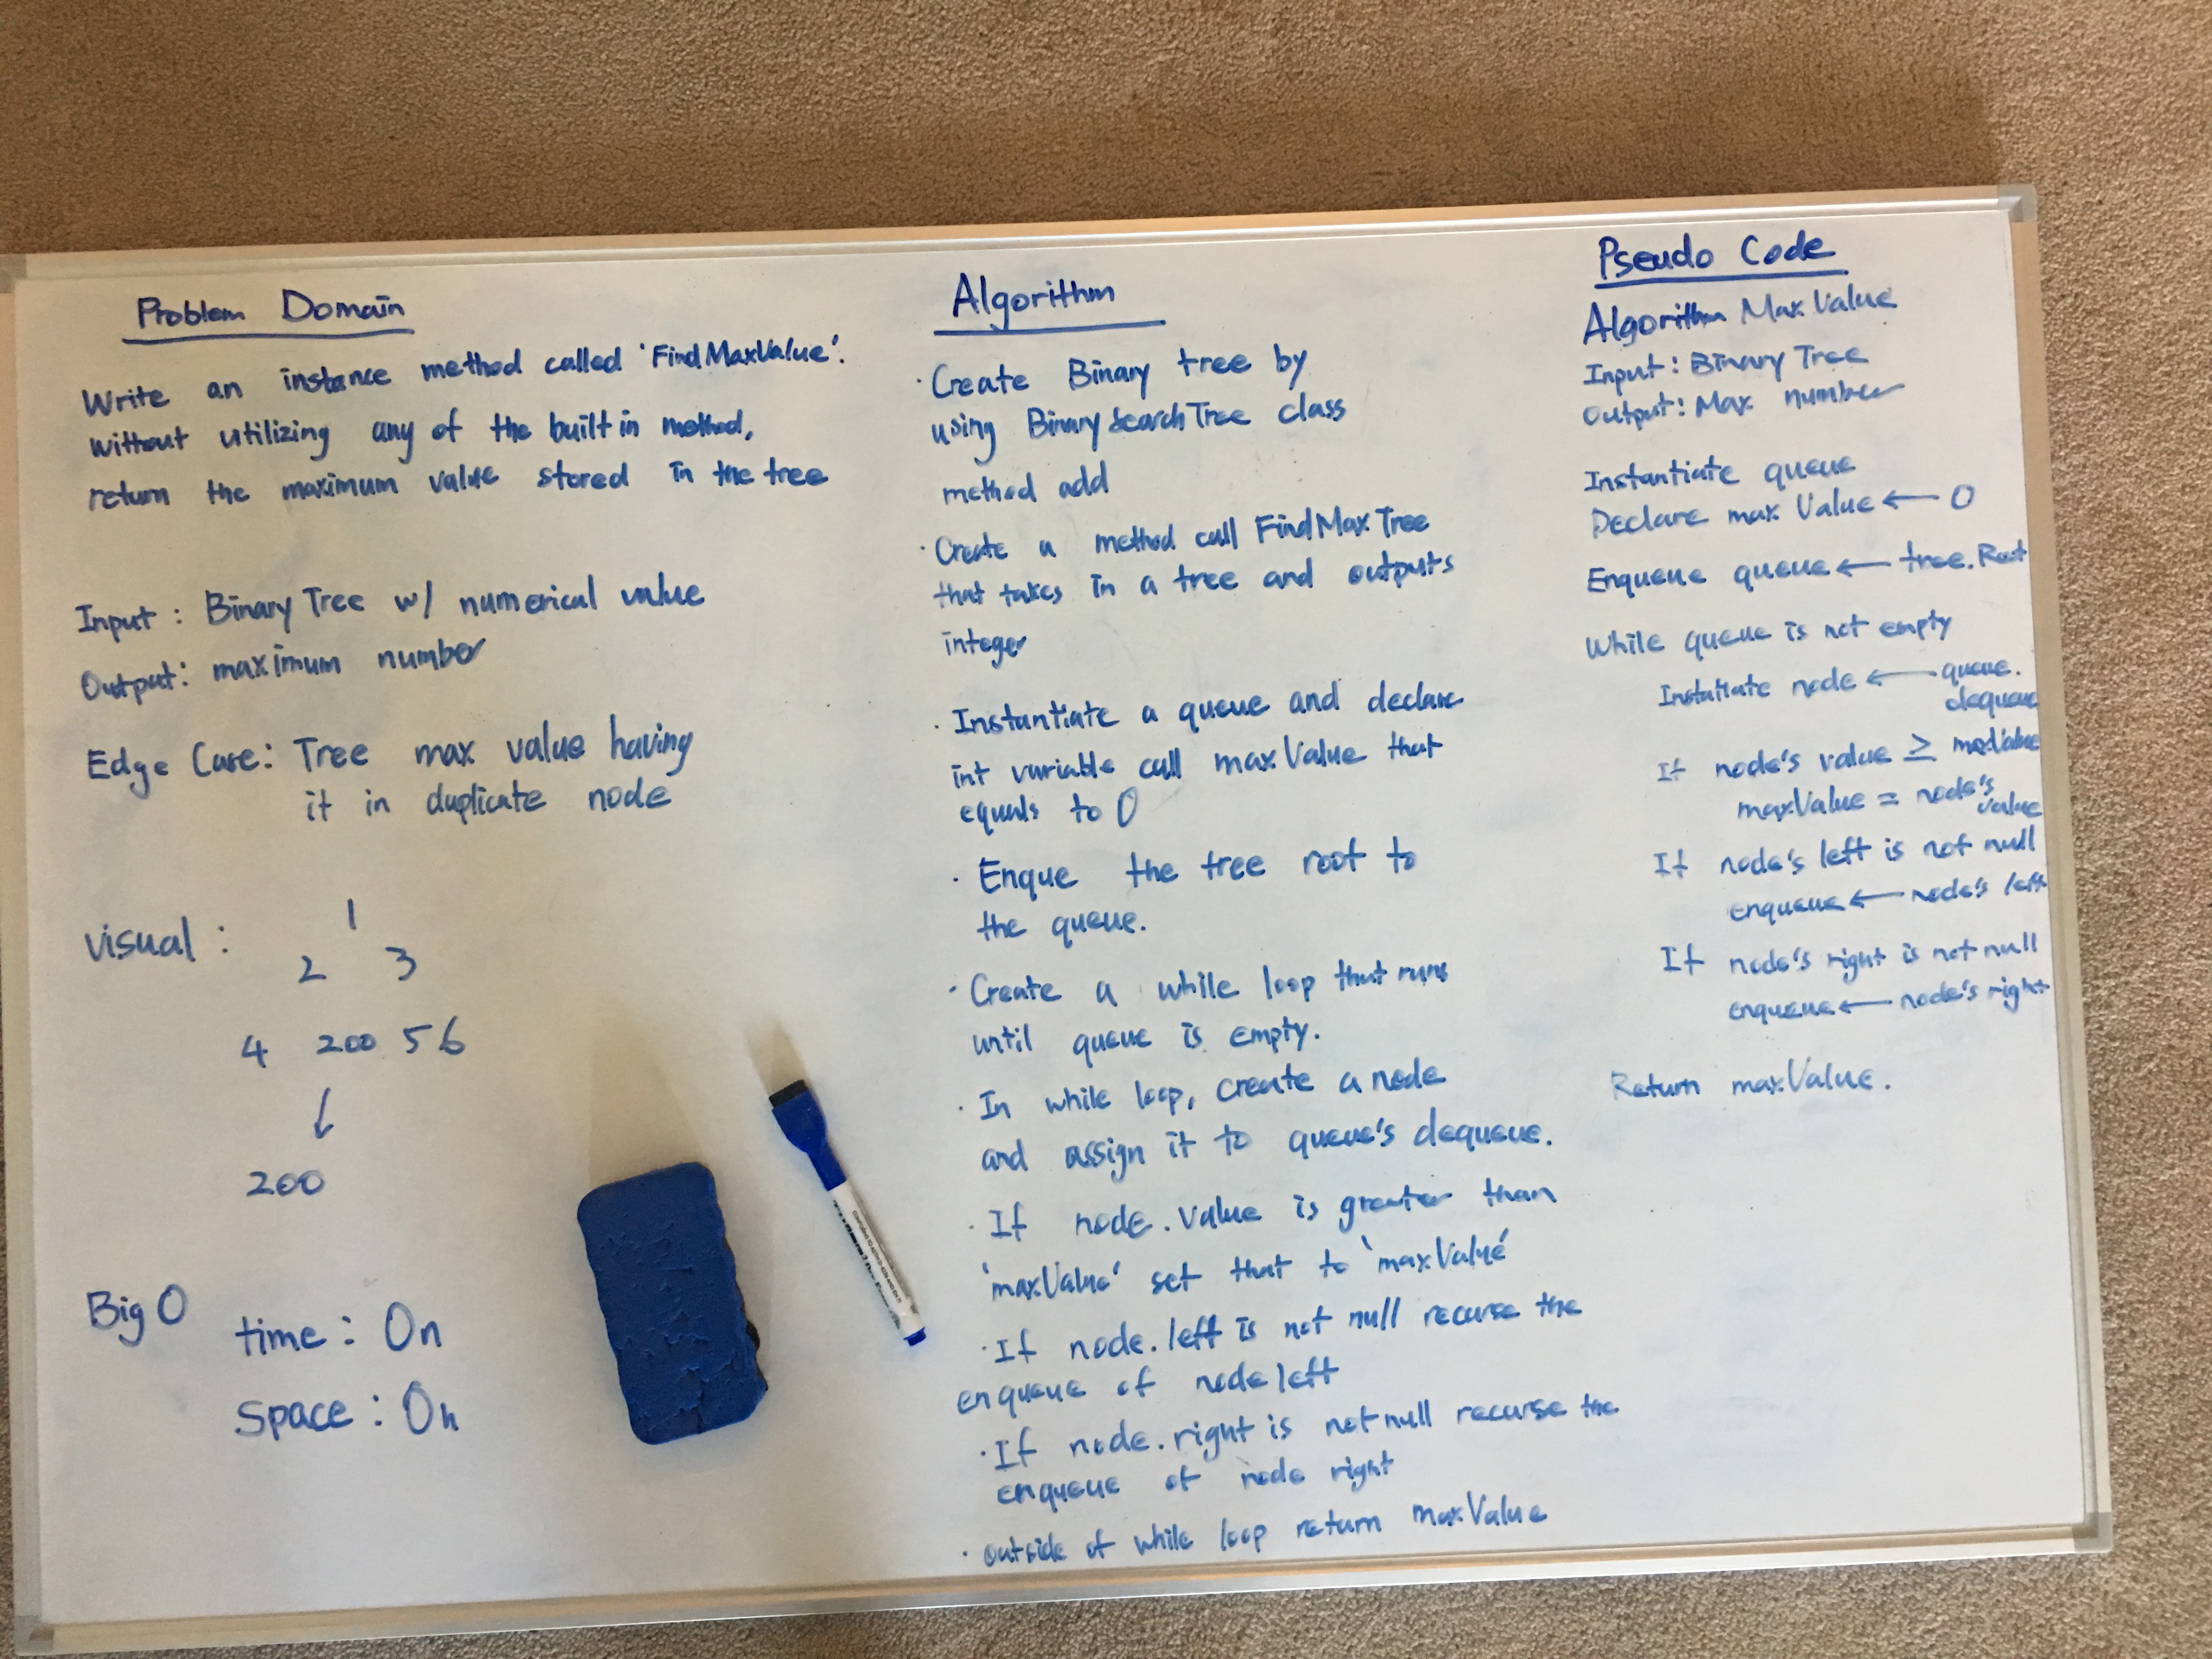 Problem Domain
Write an instance method called 'FindMaxValue'.
without utilizing any of the built in method,
return the maximum value stored in the tree
Input : Binary Tree w/ numerical value
Output: maximum number
Edge Case: Tree max value having
it in duplicate node
visual :
1
2 3
4 200 5 6
↓
200
Big O
time : On
Space : On
Algorithm
· Create Binary tree by
using BinarySearchTree class
method add
· Create a method call FindMaxTree
that takes in a tree and outputs
integer
· Instantiate a queue and declare
int variable call maxValue that
equals to 0
· Enque the tree root to
the queue.
· Create a while loop that runs
until queue is empty.
· In while loop, create a node
and assign it to queue's dequeue.
· If node.value is greater than
'maxValue' set that to 'maxValue'
· If node.left is not null recurse the
enqueue of node left
· If node.right is not null recurse the
enqueue of node right
· outside of while loop return maxValue
Pseudo Code
Algorithm MaxValue
Input: Binary Tree
Output: Max number
Instantiate queue
Declare maxValue ← 0
Enqueue queue ← tree.Root
While queue is not empty
Instatiate node ← queue.
dequeue
If node's value ≥ maxValue
maxValue = node's
value
If node's left is not null
enqueue ← node's left
If node's right is not null
enqueue ← node's right
Return maxValue.